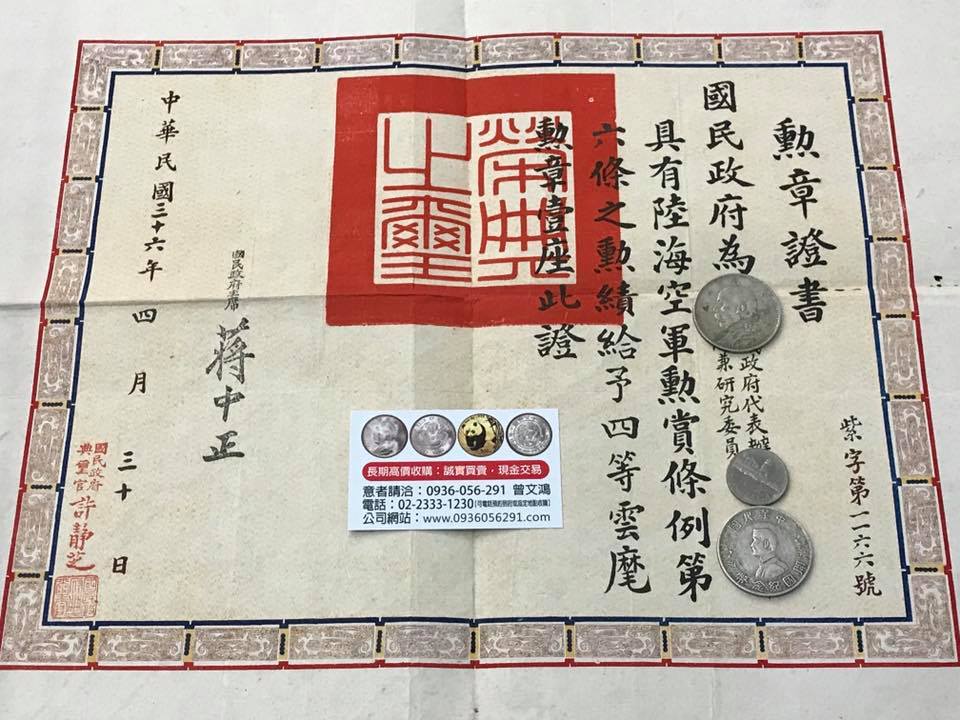 勳章證書
國民政府為
政府代表辦
兼研究委員
具有陸海空軍勳賞條例第
六條之勳績給予四等雲麾
勳章壹座此證
榮典
之璽
紫字第一一六六號
國民政府主席
蔣中正
中華民國三十六年四月三十日
國民政府
典璽官
許靜芝
長期高價收購：誠實買賣，現金交易
意者請洽：0936-056-291 曾文鴻
電話：02-2333-1230(可電話預約到府或指定地點收購)
公司網站：www.0936056291.com
中華民國
開國紀念幣